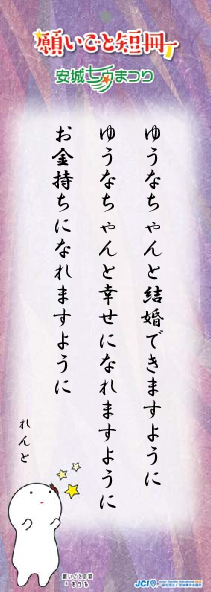 願いごと短冊
安城七夕まつり
ゆうなちゃんと結婚できますように
ゆうなちゃんと幸せになれますように
お金持ちになれますように
れんと
願いごと短冊
JCI